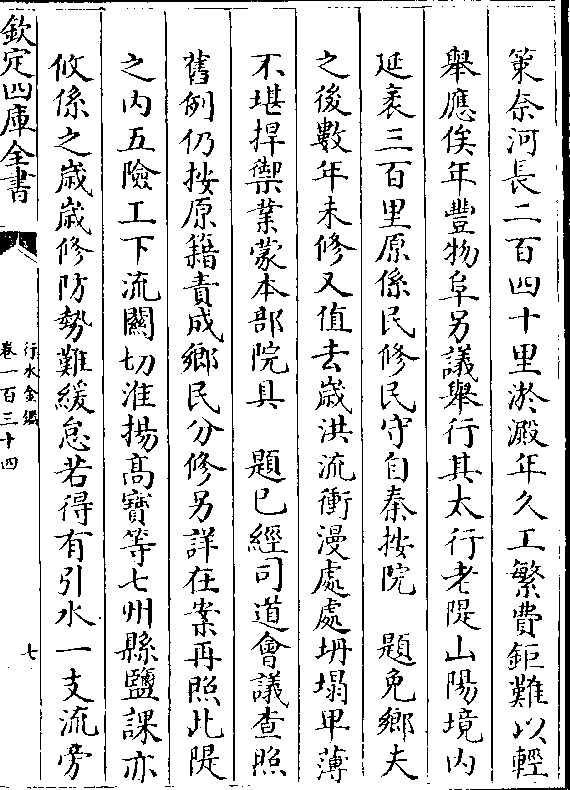 策奈河長二百四十里淤澱年久工繁費鉅難以輕
舉應俟年豐物阜另議舉行其太行老隄山陽境内
延袤三百里原係民修民守自秦按院 題免鄉夫
之後數年未修又值去嵗洪流衝漫處處坍塌卑薄
不堪捍禦業蒙本部院具 題已經司道會議查照
舊例仍按原籍責成鄉民分修另詳在案再照此隄
之内五險工下流關切淮揚高寳等七州縣鹽課亦
攸係之嵗嵗修防勢難緩怠若得有引水一支流旁
欽定四庫全書
行水金鑑
卷一百三十四
七